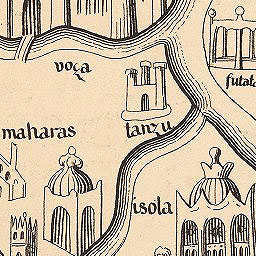 voça
futat
maharas
tanzu
isola